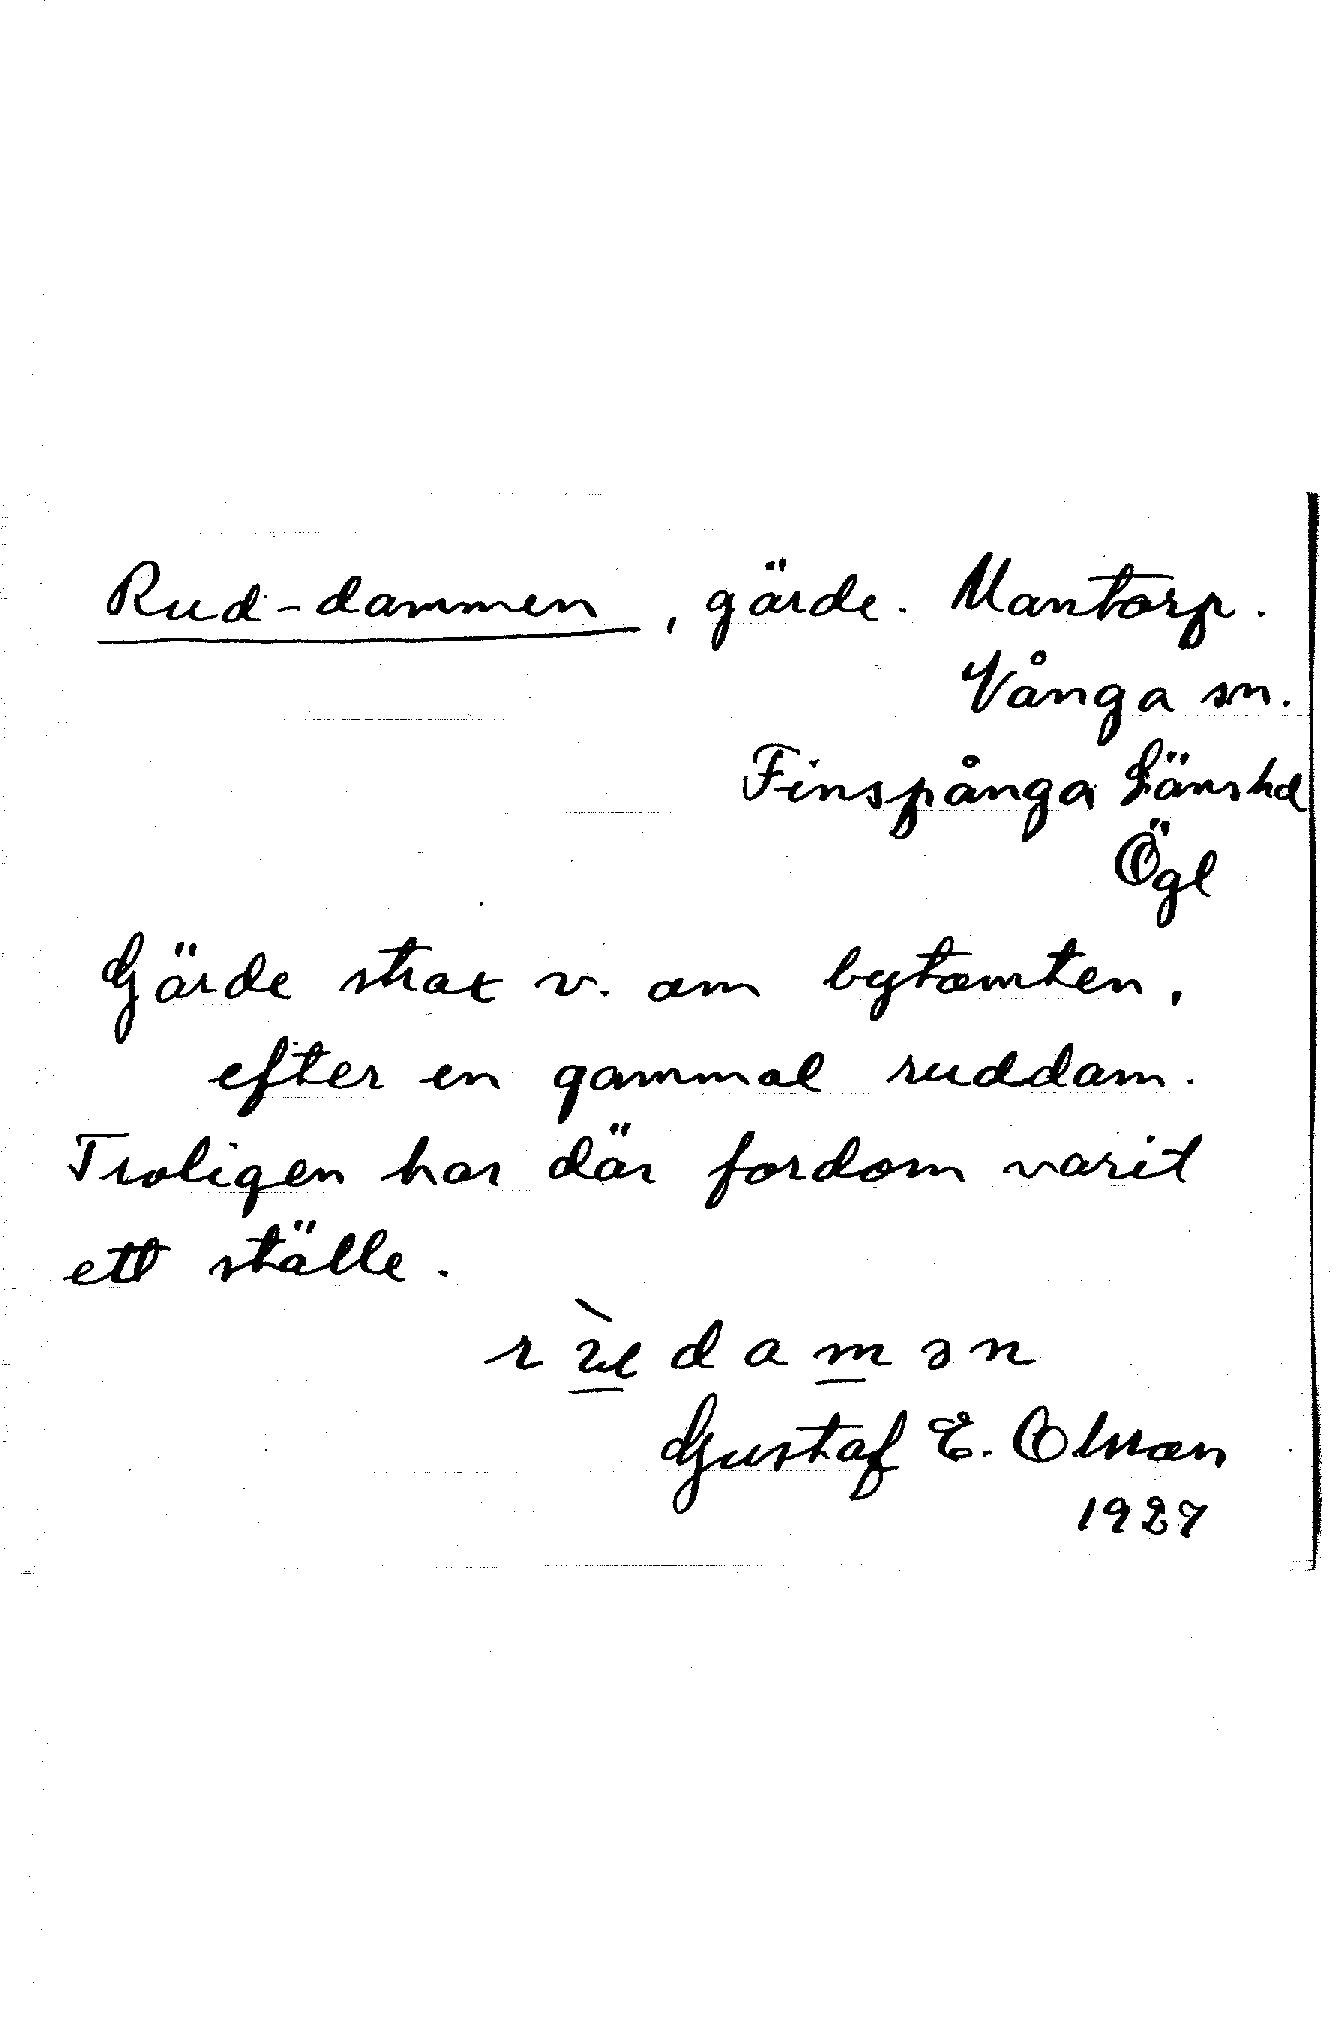 Rud-dammen, gärde. Mantorp.
Vånga sn.
Finspånga Länshd
Ögl
Gärde strax v. om bytomten,
efter en gammal ruddam.
Troligen har där fordom varit
ett ställe.
damən
Gustaf E. Olsson
1927